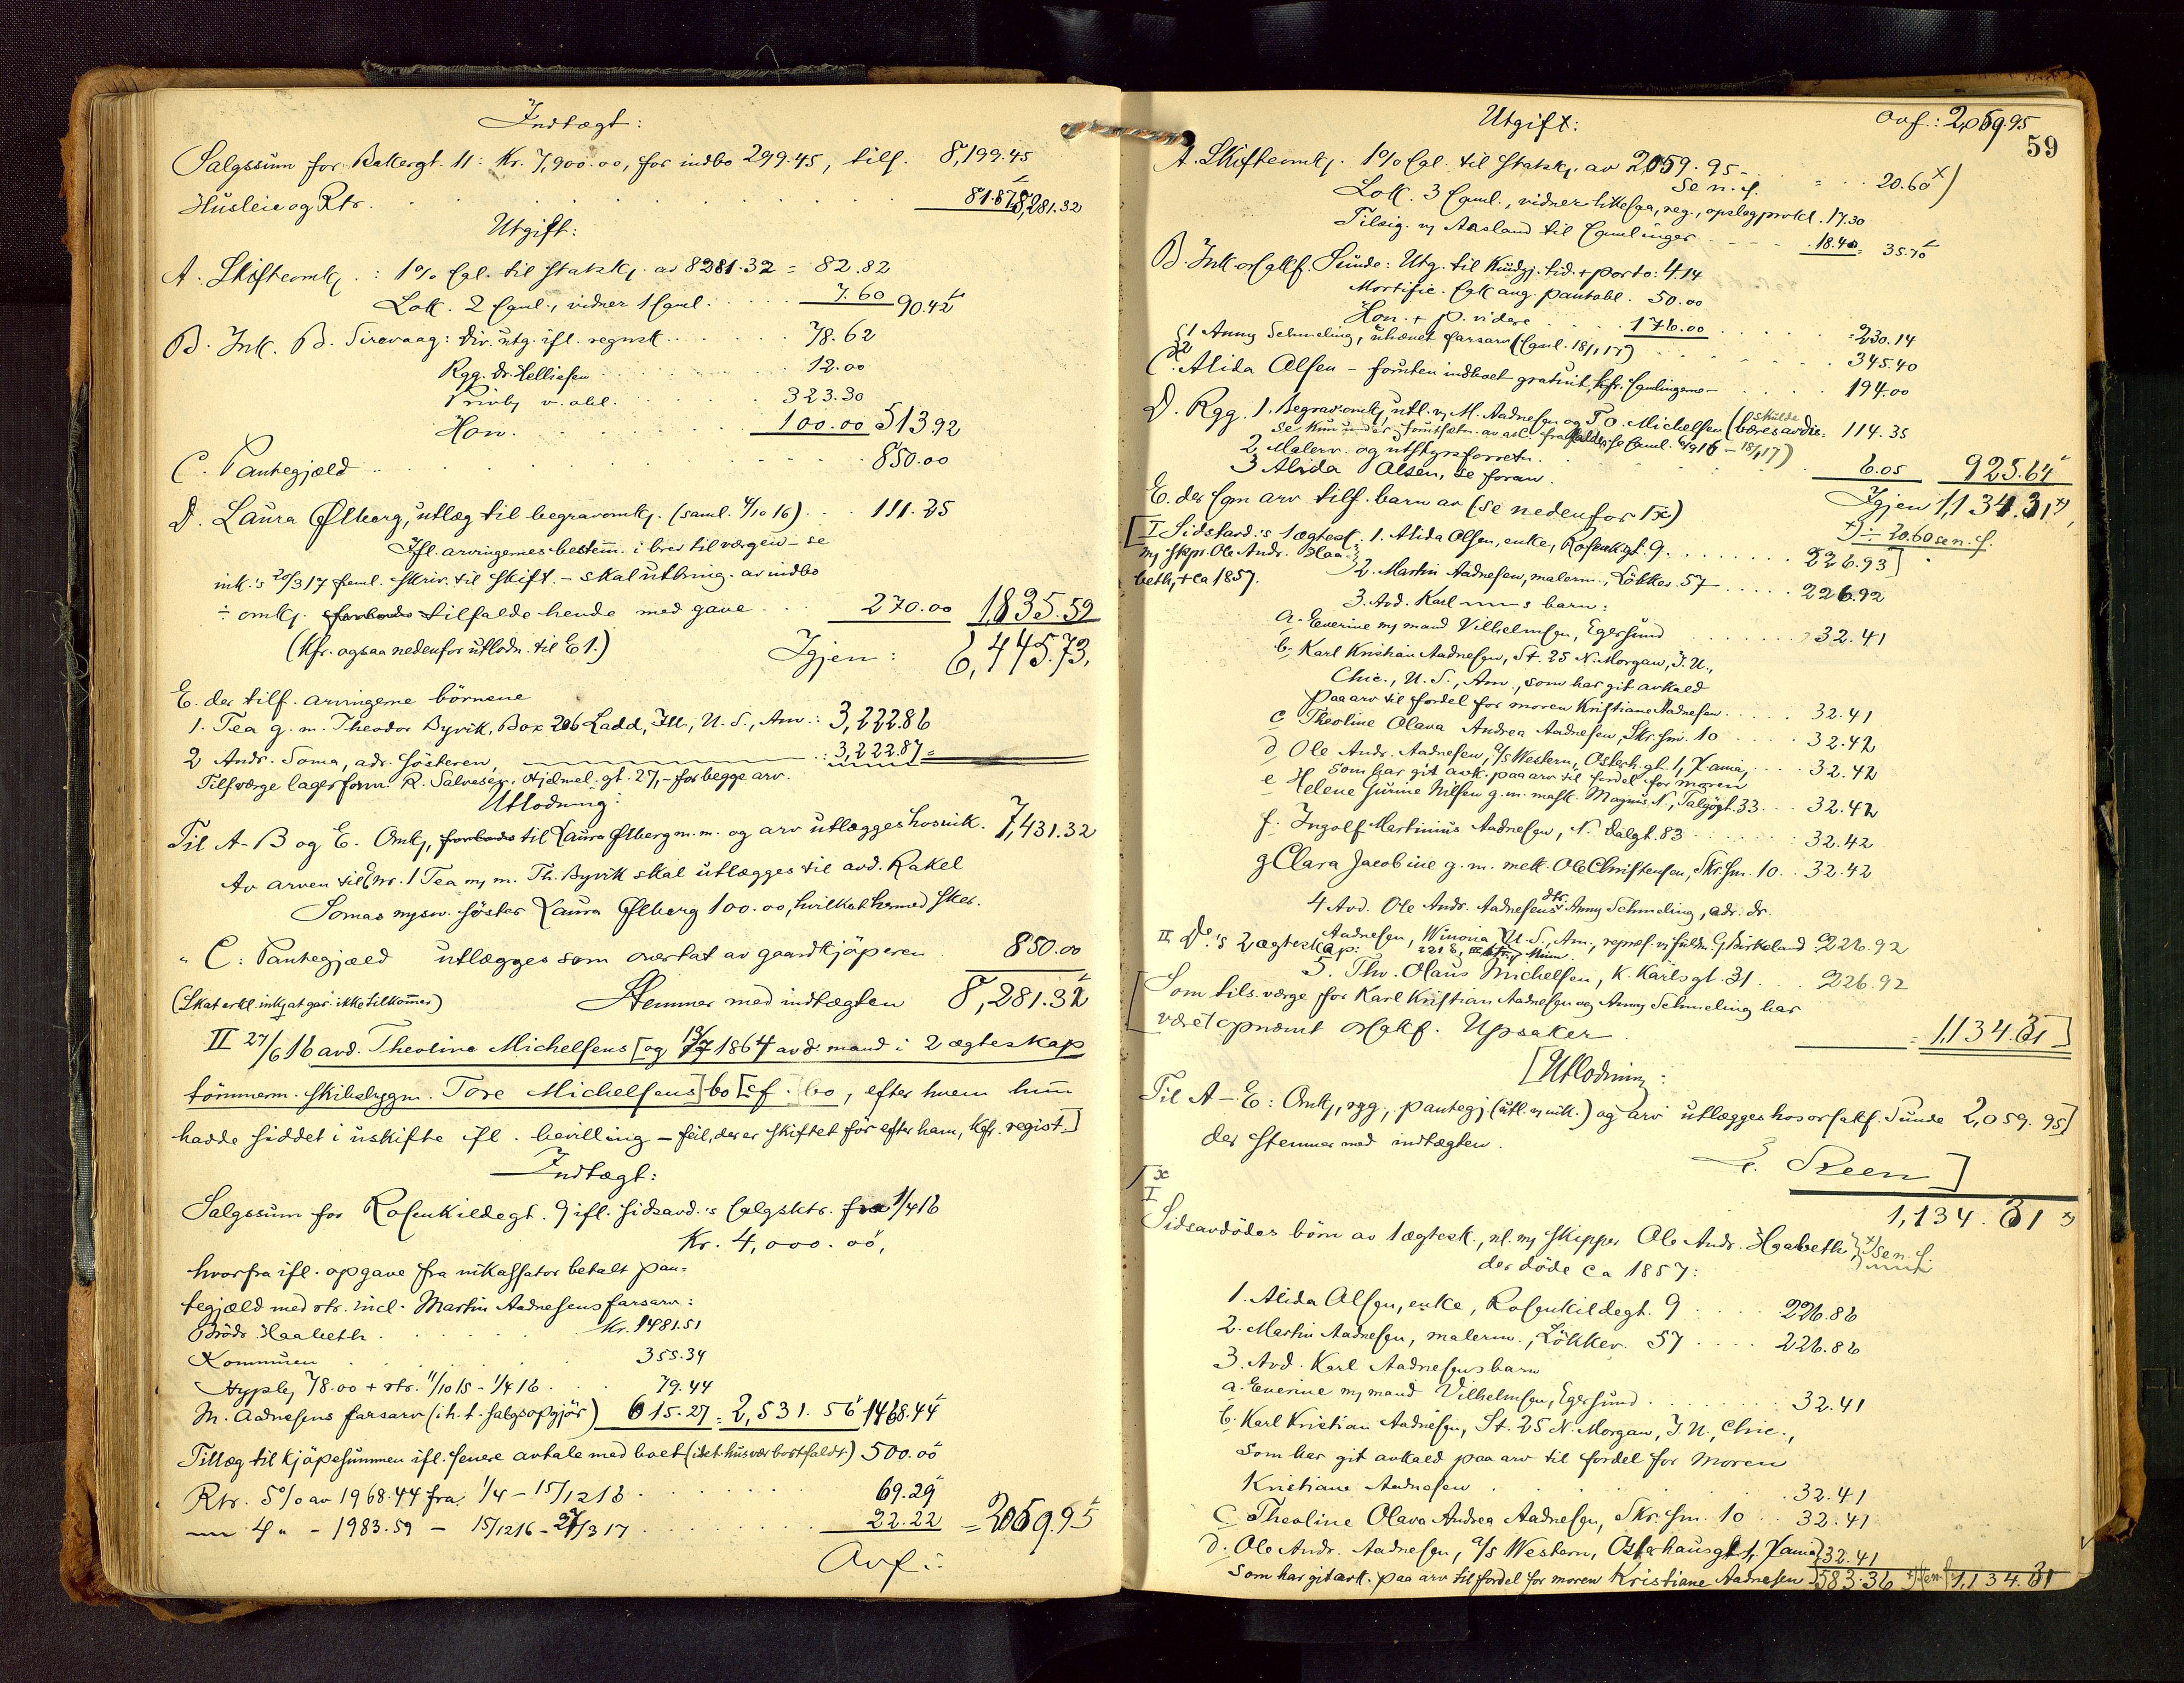 Indtægt:
Salgssum for Bakkergt. 11: Kr. 7,900.00, for indbo 299.45, tils. 8,199.45
Husleie og Rtr. 81.87 8,281.32
Utgift:
A. Skifteomk. : 1% Egl. til statsk. av 8281.32 = 82.82
Lok. 2 saml., vidner 1 saml. 7.60 90.42
B. Ink. B. Sirevaag: Div. utg. ifl. regnsk. 78.62
Rgg. Dr. Helliesen 12.00
323.30
Hon. 100.00 513.92
C. Pantegjæld 850.00
D. Laura Ølberg, utlæg til begravomk. (saml. 4/10 16) 111.25
Ifl. arvingernes bestem. i brev til værgen – se
ink.'s 20/3 17 skriv. til skift. – skal utbring. av indbo
÷ omk. tilfalde hende med gave 270.00 1,835.59
(Kfr. ogsaa nedenfor utlodn. til E 1.) Igjen: 6,445.73,
E. der tilf. arvingerne börnene
1. Tea g. m. Theodor Byvik, Box 206 Ladd, Ill., U. S., Am.: 3,222.86
2 Andr. Soma, adr. Søsteren, : 3,222.87 =
Tilsværge lagerform. R. Salvesen, Hjelmel. gt. 27, – for begge arv.
Utlodning:
Til A-B og E. Omk, til Laura Ølberg m.m. og arv utlægges hos ink. 7,431.32
Av arven til E nr. 1 Tea m. Th. Byvik skal utlægges til avd. Rakel
Somas søster Laura Ølberg 100.00, hvilket hermed sker.
" C: Pantegjæld utlægges som overtat av gaardkjøperen 850.00
(Skat erkl. ikke tilkommer) Stemmer med indtægten 8,281.32
II 27/6 16 avd. Theolina Michelsens [og 1864 avd. mand i 2 ægteskap
tömmerm. skibsbyggm. Tore Michelsens] bo [sf.] bo, efter hvem hun
hadde siddet i uskifte ifl. bevilling – feil, der er skiftet för efter ham, Kfr. regist.]
Indtægt:
Salgssum for Rosenkildegt. 9 ifl. sidsavd.'s salgsktr. fra 1/4 16
Kr. 4,000.00,
hvorfra ifl. opgave fra inkassator betalt pan-
tegjæld med rtr. incl. Martin Aadnesens farsarv:
Brödr. Haabeth Kr. 1481.51
Kommunen 355.34
78.00 + rtr. 11/10 15 - 1/4 16 79.44
M. Aadnesens farsarv (i h. t. salgsopgjör) 615.27 = 2,531.56 1468.44
Tillæg til kjøpesummen ifl. senere avtale med boet (idet husvær bortfaldt) 500.00
Rtr. 5% av 1968.44 fra 1/4 - 15/12 16 69.29
4 " - 1983.59 - 15/12 16 - 27/3 17 22.22 = 2059.95
Ovf.:
Utgift: Ovf.: 2,059.95
59
A. Skifteomk. 1% Egl. til statsk. av 2059.95 - = 20.60 x)
se n. f.
Lok. 3 saml., vidner likesaa, reg., opslag protkl. 17.30
Tilsig. v/ Aasland til samlinger 18.40 = 35.70
B. Ink. orsakf. Sunde: Utg. til Kundgj. tid. + porto: 4.14
Mortific. sak ang. pantobl. 50.00
Hon. + p. videre 176.00 = 230.14
1 Anny Schmeling, uhævet farsarv (saml. 18/1 17) 345.40
C. Alida Olsen – foruten indboet gratuit, kfr. samlingerne – 194.00
D. Rgg. 1. Begrav.omk, utl. v/ M. Aadnesen og T. O. Michelsen (skulde bæres av dis- 114.35
2, Malerv. og
3 Alida Olsen, se foran. 6.05 925.64
E. der som arv tilf. barn av (se nedenfor [x) Igjen 1,134.31 x)
x) ÷ 20.60 se n. f.
[I Sidstavd.'s 1 ægtesk. 1. Alida Olsen, enke, Rosenk.gt. 9. 226.93]
m/ skpr. Ole Andr. Haa-
beth, + ca 1857. 2. Martin Aadnesen, malerm., Lökkev. 57 226.92
3. Avd. Karl s barn:
a. Everine m/ mand Vilhelmsen, Egersund 32.41
b. Karl Kristian Aadnesen, St. 25 N. Morgan, J. U.,
Chic., U. S., Am., som har git avkald
paa arv til fordel for moren Kristiane Aadnesen 32.41
c Theoline Olava Andrea Aadnesen, Skr. sm. 10 32.42
d Ole Andr. Aadnesen, a/s Western, Osterh. gt. 1, 32.42
som har git avk. paa arv til fordel for moren
e Helene Gurine Nilsen g. m. mask. Magnus N., Talgögt. 33 32.42
f. Ingolf Martinius Aadnesen, N. Dalgt. 83 32.42
g Clara Jacobine g. m. mek. Ole Christensen, Skr. sm. 10 32.42
4 Avd. Ole Andr. Aadnesens dtr. Anny Schmeling, adr. dr.
Aadnesen, Winona, U. S., Am., repræs. v/ fuldm. G. Birkeland 226.92
II Do.'s 2 ægteskap:
5. Thv. Olaus Michelsen, K. Karlsgt. 31 226.92
[Som tils. værge for Karl Kristian Aadnesen og Anny Schmeling har
været opnævnt orsakf. Upsaker = 1,134.31]
[Utlodning:
Til A – E: Omk, rgg, pantegj (utl. v/ ink.) og arv utlægges hos orsakf. Sunde 2,059.95]
der stemmer med indtægten.
Steen]
[x
I 1,134.31 x)
Sidsavdödes börn av 1 ægtesk., nl. m/ skipper Ole Andr. Haabeth x) se n. f.
der döde ca 1857:
1. Alida Olsen, enke, Rosenkildegt. 9 226.86
2. Martin Aadnesen, malerm., Lökkev. 57 226.86
3. Avd. Karl Aadnesens barn
a. Everine m/ mand Vilhelmsen, Egersund 32.41
b. Karl Kristian Aadnesen, St. 25 N. Morgan, J. U., Chic.,
som har git avkald paa arv til fordel for moren
Kristiane Aadnesen 32.41
c Theoline Olava Andrea Aadnesen, Skr. sm. 10 32.41
d. Ole Andr. Aadnesen, a/s Western, Osterhausgt. 1, 32.41
som har git avk. paa arv til fordel for moren Kristiane Aadnesen 583.36 1,134.31